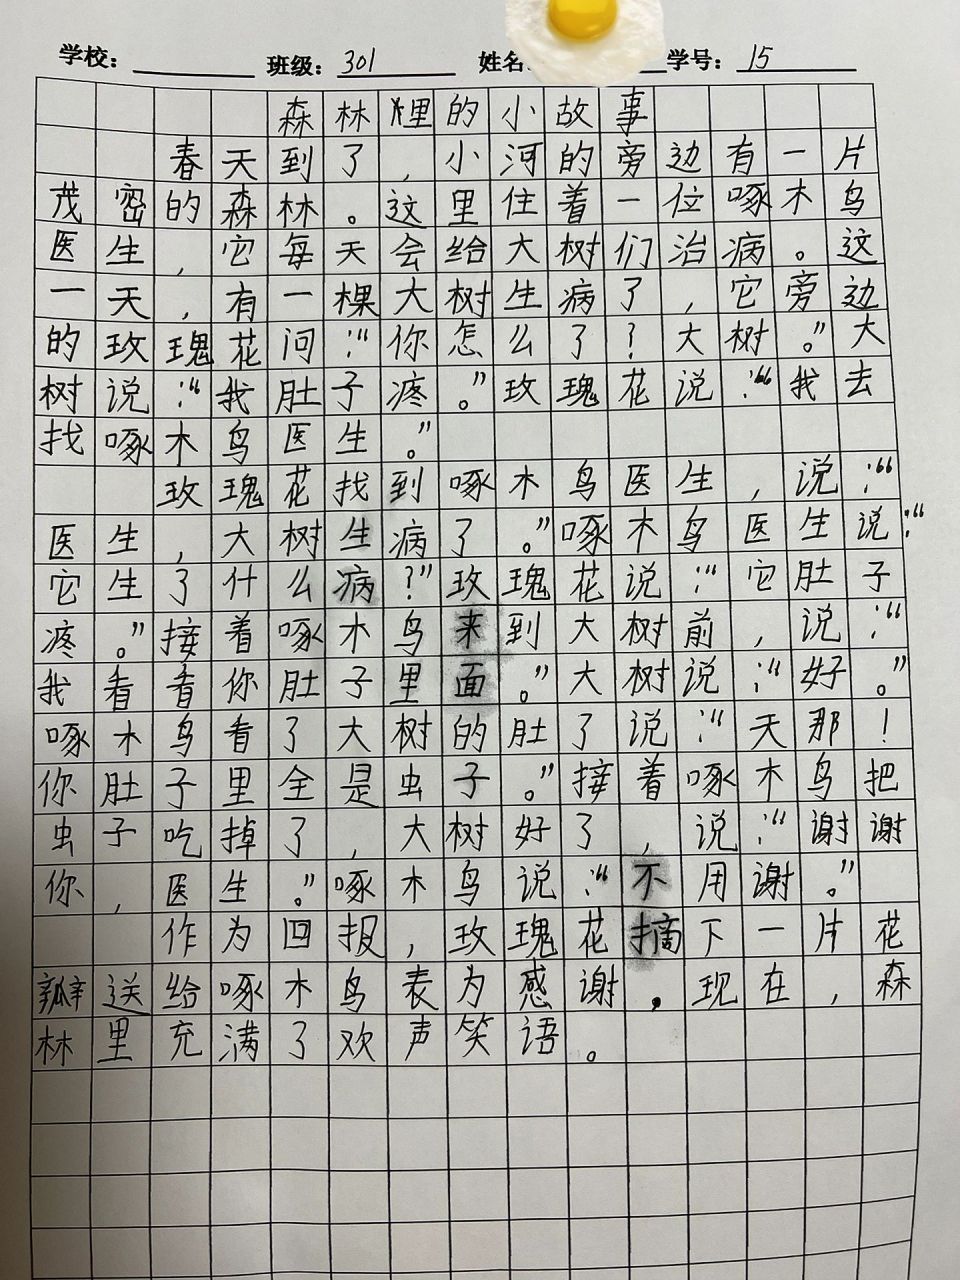 学校： 班级：301 姓名 学号：15
森林里的小故事
春天到了，小河的旁边有一片
茂密的森林。这里住着一位啄木鸟
医生，它每天会给大树们治病。这
一天，有一棵大树生病了，它旁边
的玫瑰花问：“你怎么了？大树。”大
树说：“我肚子疼。”玫瑰花说：“我去
找啄木鸟医生。”
玫瑰花找到啄木鸟医生，说：“
医生，大树生病了。”啄木鸟医生说：“
它生了什么病？”玫瑰花说：“它肚子
疼。”接着啄木鸟来到大树前，说：“
我看看你肚子里面。”大树说：“好。”
啄木鸟看了大树的肚了说：“天那！
你肚子里全是虫子。”接着啄木鸟把
虫子吃掉了，大树好了，说：“谢谢
你，医生。”啄木鸟说：“不用谢。”
作为回报，玫瑰花摘下一片花
瓣送给啄木鸟表为感谢，现在，森
林里充满了欢声笑语。